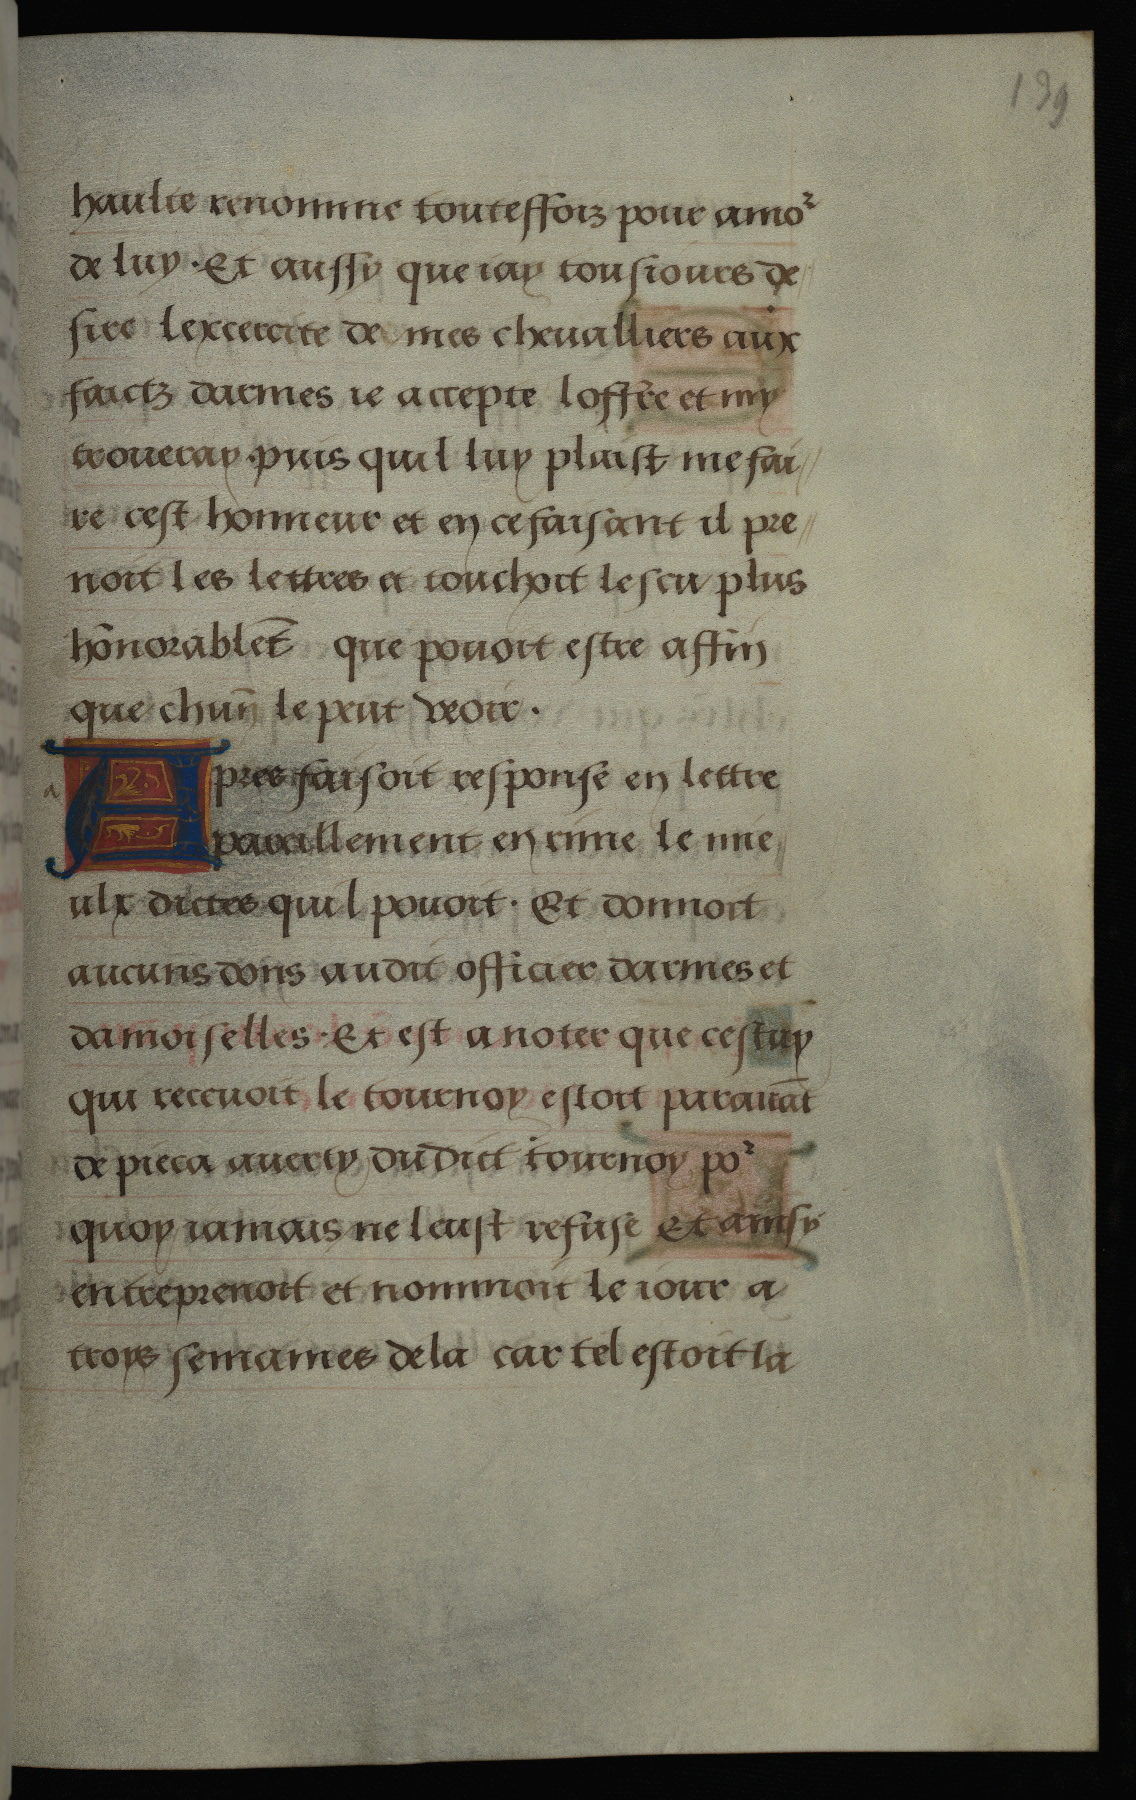 139
haulte renomme touteffoiz pour amoꝛ
de luy · Et aussy que iay tousiours de//
sire lexcercite de mes chevalliers aux
faictz darmes ie accepte loffre et my
trouveray · puis quil luy plaist me fai//
re cest honneur et en ce faisant il pre//
noit les lettres et touchoit lescu plus
hōnorablet̄ que povoit estre affin
que chun̄ le peut veoir ·
a
Apres faisoit response en lettre
pareillement en rime le mie//
ulx dictes quil povoit · Et donnoit
aucuns dons audit officier darmes et
damoiselles · Et est a noter que cestuy
qui recevoit le tournoy estoit paravāt
de pieca averty dudict tournoy poꝛ
quoy iamais ne leust refuse Et ainsy
entreprenoit et nommoit le iour a
troys semaines dela car tel estoit la